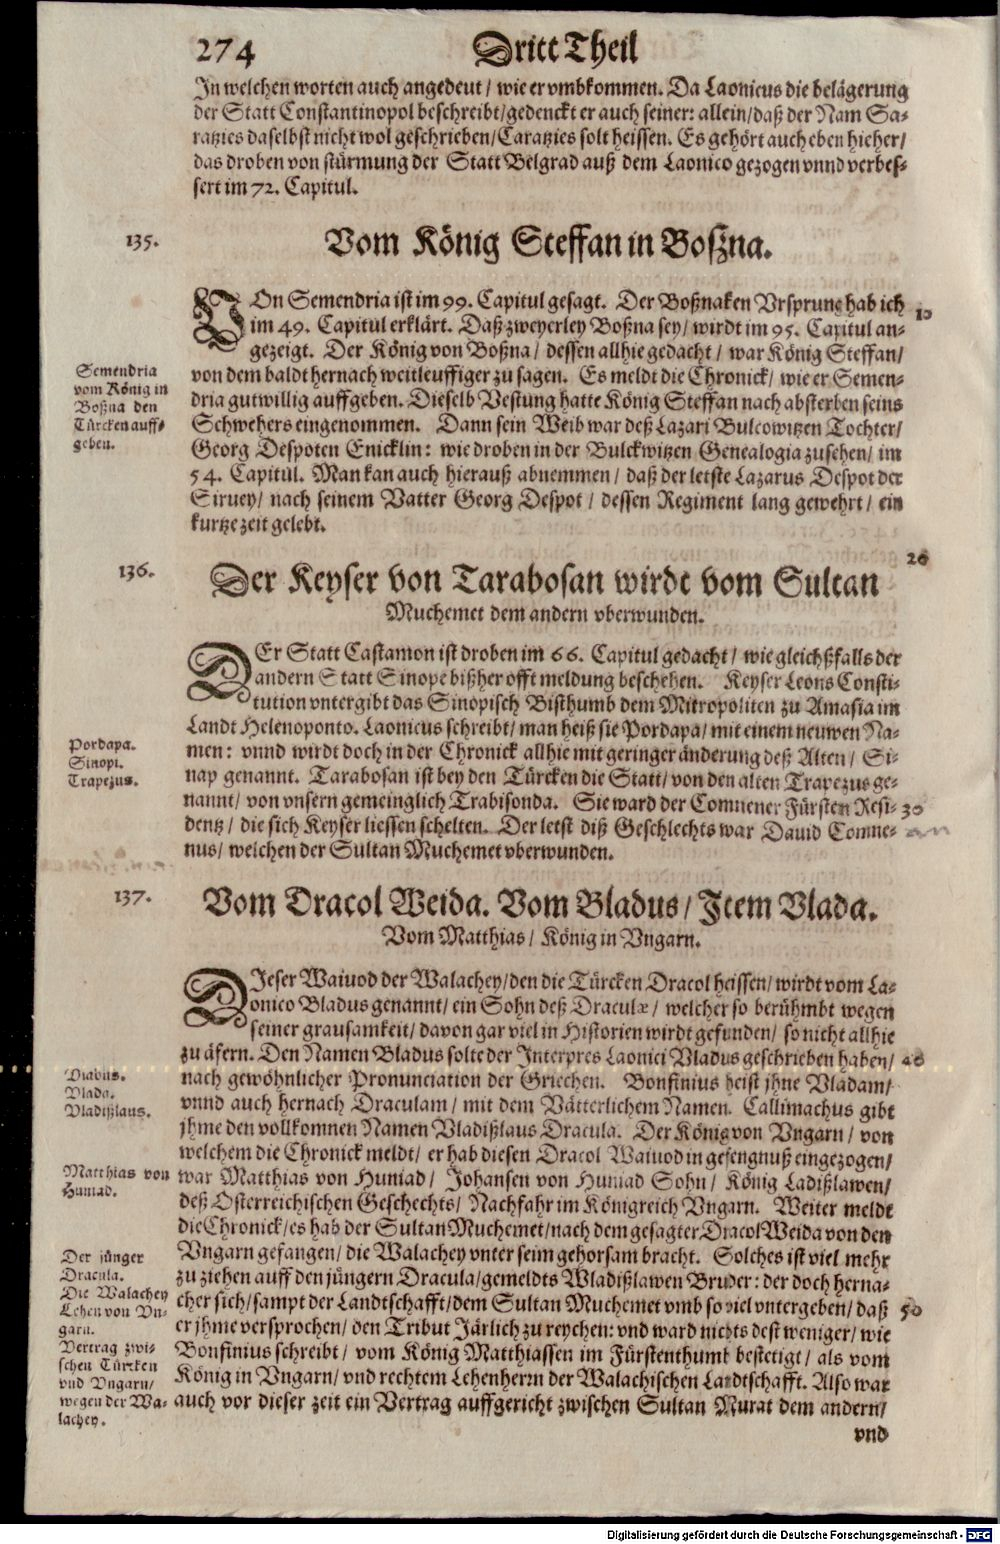 274 Dritt Theil
In welchen worten auch angedeut / wie er vmbkommen. Da Laonicus die belägerung
der Statt Constantinopol beschreibt/gedenckt er auch seiner: allein/daß der Nam Sa-
ratzies daselbst nicht wol geschrieben/Caratzies solt heissen. Es gehört auch eben hieher/
das droben von stürmung der Statt Belgrad auß dem Laonico gezogen vnnd verbes-
sert im 72. Capitul.
135. Vom König Steffan in Boßna.
VOn Semendria ist im 99. Capitul gesagt. Der Boßnaken Vrsprung hab ich 10
im 49. Capitul erklärt. Daß zweyerley Boßna sey/ wirdt im 95. Capitul an-
gezeigt. Der König von Boßna / dessen allhie gedacht / war König Steffan/
von dem baldt hernach weitleuffiger zu sagen. Es meldt die Chronick/ wie er Semen-
dria gutwillig auffgeben. Dieselb Vestung hatte König Steffan nach absterben seins
Schwehers eingenommen. Dann sein Weib war deß Lazari Bulcowitzen Tochter/
Georg Despoten Enicklin: wie droben in der Bulckwitzen Genealogia zusehen/ im
54. Capitul. Man kan auch hierauß abnemmen / daß der letste Lazarus Despot der
Siruey/ nach seinem Vatter Georg Despot / dessen Regiment lang gewehrt / ein
kurtze zeit gelebt.
Semendria
vom König in
Boßna den
Türcken auff-
geben.
20
136. Der Keyser von Tarabosan wirdt vom Sultan
Muchemet dem andern vberwunden.
DEr Statt Castamon ist droben im 66. Capitul gedacht / wie gleichßfalls der
andern Statt Sinope bißher offt meldung beschehen. Keyser Leons Consti-
tution vntergibt das Sinopisch Bisthumb dem Mitropoliten zu Amasia im
Landt Helenoponto. Laonicus schreibt/ man heiß sie Pordapa/ mit einem neuwen Na-
men: vnnd wirdt doch in der Chronick allhie mit geringer änderung deß Alten / Si-
nap genannt. Tarabosan ist bey den Türcken die Statt/ von den alten Trapezus ge-
nannt/ von vnsern gemeinglich Trabisonda. Sie ward der Comnener Fürsten Resi- 30
dentz / die sich Keyser liessen schelten. Der letst diß Geschlechts war Dauid Comne-
nus/ welchen der Sultan Muchemet vberwunden.
Pordapa.
Sinopi.
Trapezus.
137. Vom Dracol Weida. Vom Bladus/ Item Vlada.
Vom Matthias / König in Vngarn.
DIeser Waiuod der Walachey/den die Türcken Dracol heissen/ wirdt vom La-
onico Bladus genannt/ ein Sohn deß Draculæ / welcher so berühmbt wegen
seiner grausamkeit/ davon gar viel in Historien wirdt gefunden/ so nicht allhie
zu äfern. Den Namen Bladus solte der Interpres Laonici Vladus geschrieben haben/ 40
nach gewöhnlicher Pronunciation der Griechen. Bonfinius heist jhne Vladam/
vnnd auch hernach Draculam / mit dem Vätterlichem Namen. Callimachus gibt
jhme den vollkomnen Namen Vladißlaus Dracula. Der König von Vngarn / von
welchem die Chronick meldt/ er hab diesen Dracol Waiuod in gefengnuß eingezogen/
war Matthias von Huniad / Johansen von Huniad Sohn / König Ladißlawen/
deß Osterreichischen Geschechts/ Nachfahr im Königreich Vngarn. Weiter meldt
die Chronick/es hab der Sultan Muchemet/nach dem gesagter Dracol Weida von den
Vngarn gefangen/ die Walachey vnter seim gehorsam bracht. Solches ist viel mehr
zu ziehen auff den jüngern Dracula/gemeldts Wladißlawen Bruder: der doch herna-
cher sich/sampt der Landtschafft/dem Sultan Muchemet vmb so viel vntergeben/ daß 50
er jhme versprochen/ den Tribut Järlich zu reychen: vnd ward nichts dest weniger/ wie
Bonfinius schreibt/ vom König Matthiassen im Fürstenthumb bestetigt/ als vom
König in Vngarn/ vnd rechtem Lehenherrn der Walachischen Landtschafft. Also war
auch vor dieser zeit ein Vertrag auffgericht zwischen Sultan Murat dem andern/
vnd
Vladus.
Vlada.
Vladißlaus.
Matthias von
Huniad.
Der jünger
Dracula.
Die Walachey
Lehen von Vn-
garn.
Vertrag zwi-
schen Türcken
vnd Vngarn/
wegen der Wa-
lachey.
Digitalisierung gefördert durch die Deutsche Forschungsgemeinschaft - DFG